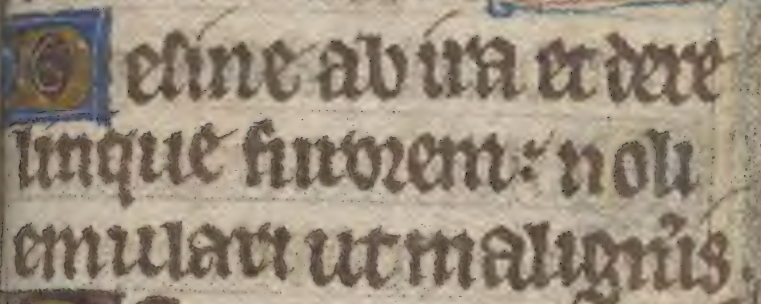 Desine ab ira et dere
linque furorem: noli
emulari ut maligneris.